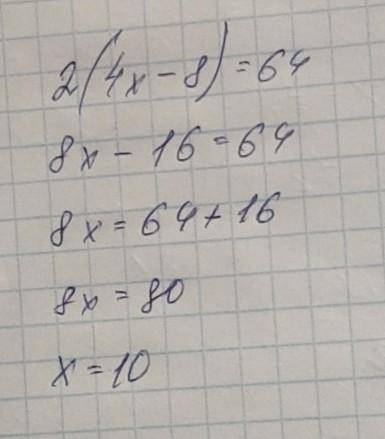 2(4x-8)=64
8x-16=64
8x=64+16
8x=80
x=10